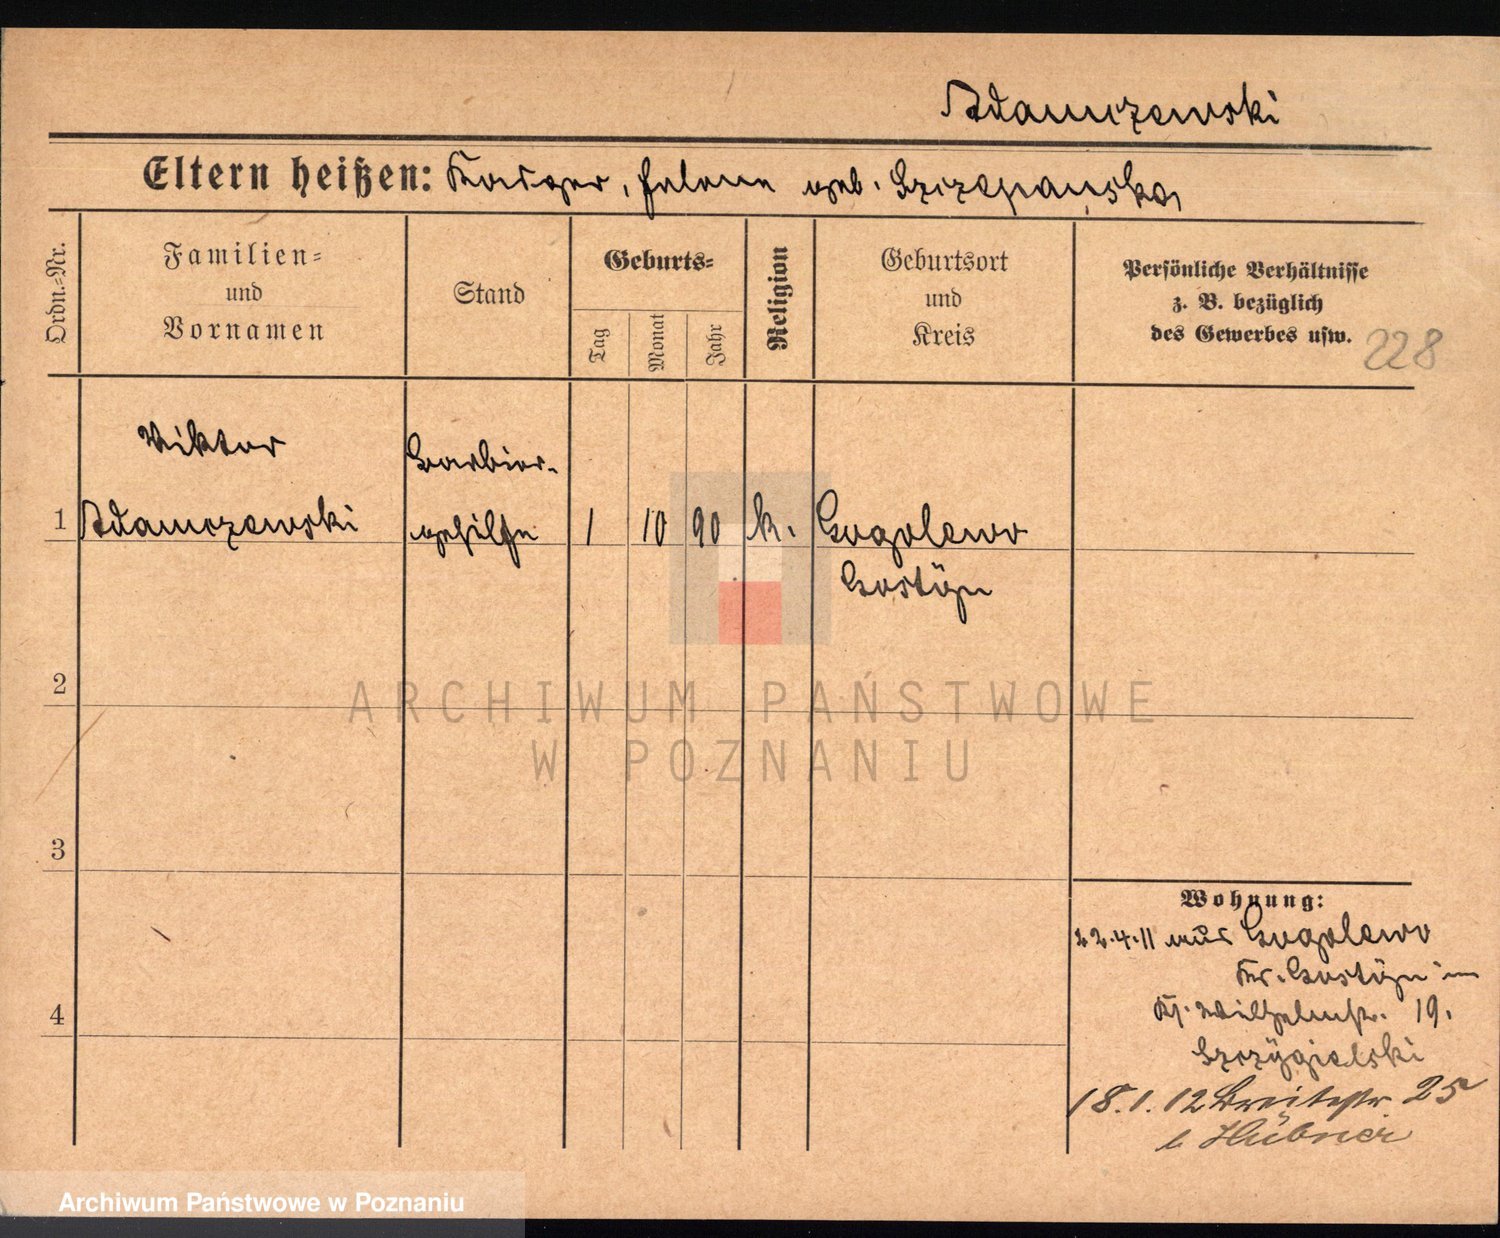 Adamczewski
Eltern heißen: Kasper, Helene geb. Szczepańska
Ordn.-Nr.
Familien-
und
Vornamen
Stand
Geburts-
Tag
Monat
Jahr
Religion
Geburtsort
und
Kreis
Persönliche Verhältnisse
z. B. bezüglich
des Gewerbes usw.
228
Viktor
Barbier-
1 Adamczewski gehilfe 1 10 90 k. Gogolewo
Gostÿn
2
ARCHIWUM PAŃSTWOWE
W POZNANIU
3
4
Wohnung:
22.4.11 aus Gogolewo
Kr. Gostÿn in
Wilhelmstr. 19.
Szczÿgielski
18.1.12 Breitestr 25
b Hübner
Archiwum Państwowe w Poznaniu